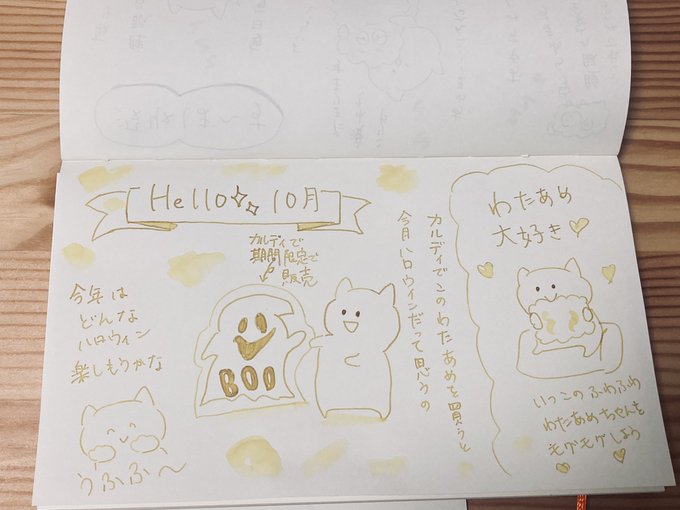 Hello 10月
カルディで
期間限定で
販売
今年は
どんな
ハロウィン
楽しもうかな
うふふ〜
BOO
カルディでこのわたあめを買うと
今月ハロウィンだって思うの
わたあめ
大好き
いつこのふわふわ
わたあめちゃんを
モグモグしよう